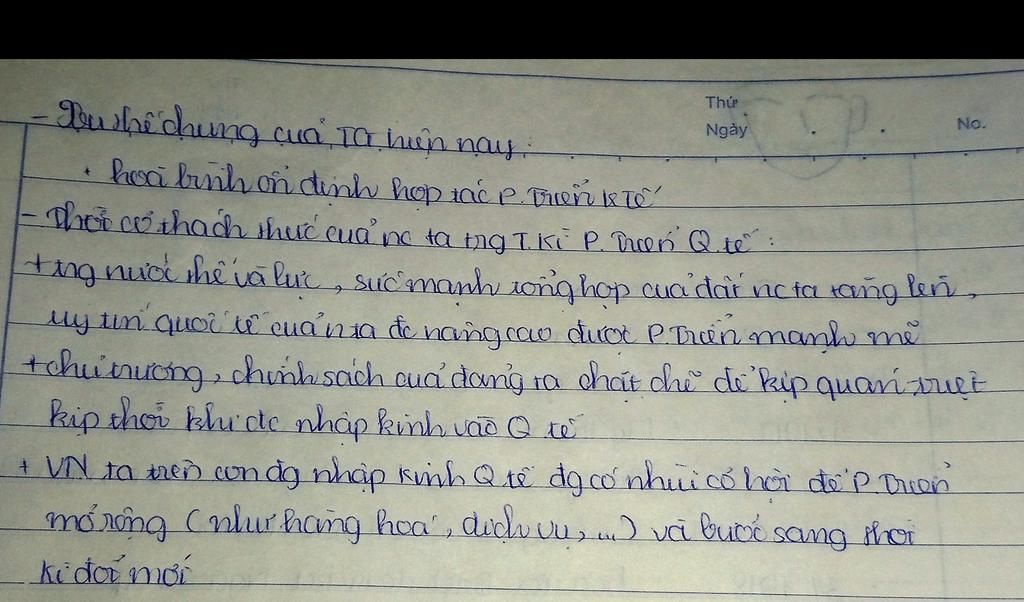 Thứ
Ngày
No.
- Xu thế chung của TG hiện nay:
. hoà bình ổn định hợp tác P. Triển K Tế
- Thời cơ thách thức của nc ta tng T. Kì P. Triển Q tế:
+ tng nước thế và lực, sức mạnh tổng hợp của đất nc ta tăng lên,
uy tín quốc tế của n ta đc nâng cao được P. Triển mạnh mẽ
+ chủ trương, chính sách của đảng ra chặt chẽ để kịp quán triệt
kịp thời khi đc nhập kinh vào Q tế
+ VN ta trên con đg nhập kinh Q tế đg có nhìu cơ hội để P. Triển
mở rộng (như hàng hoá, dịch vụ, ...) và bước sang thời
kì đổi mới